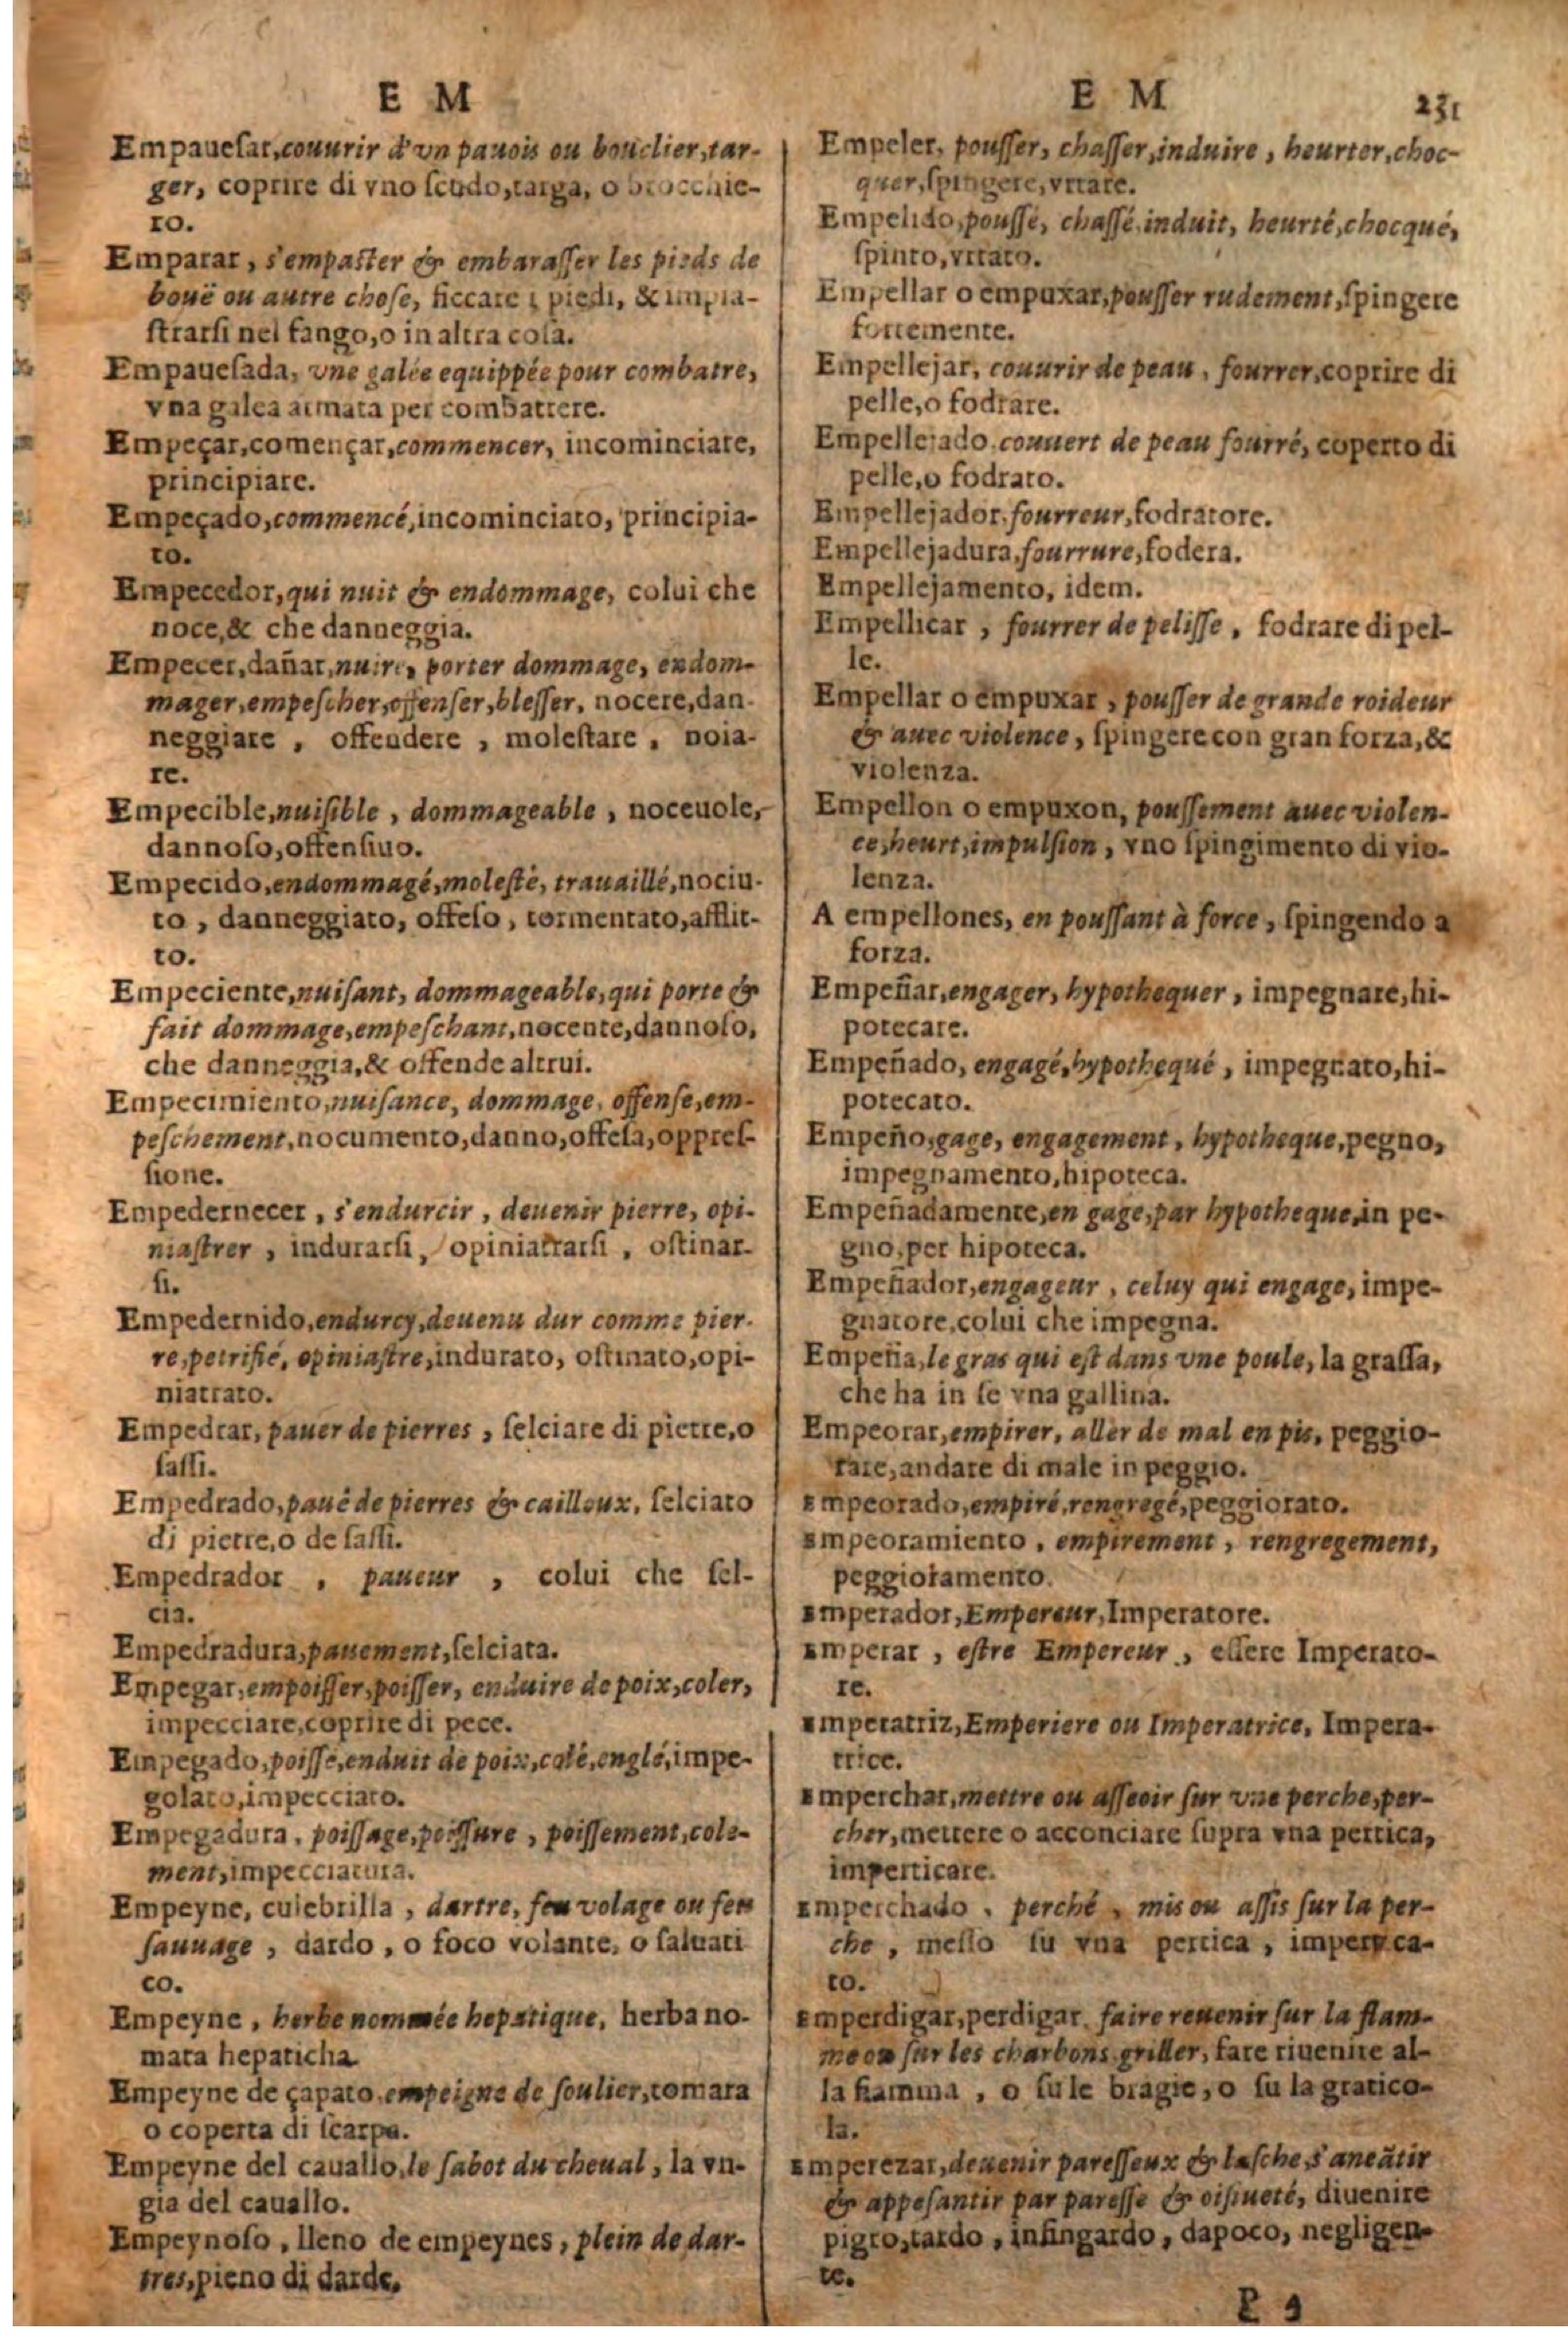 E M
Empauesar, couurir d'vn pauois ou bouclier, tar-
ger, coprire di vno scudo, targa, o brocchie-
ro.
Emparar, s'empaster & embarasser les pieds de
bouë ou autre chose, ficcare i piedi, & impia-
strarsi nel fango, o in altra cosa.
Empauesada, vne galée equippée pour combatre,
vna galea armata per combattere.
Empeçar, començar, commencer, incominciare,
principiare.
Empeçado, commencé, incominciato, principia-
to.
Empecedor, qui nuit & endommage, colui che
noce, & che danneggia.
Empecer, dañar, nuire, porter dommage, endom-
mager, empescher, offenser, blesser, nocere, dan-
neggiare , offendere , molestare , noia-
re.
Empecible, nuisible , dommageable , noceuole,
dannoso, offensiuo.
Empecido, endommagé, molesté, trauaillé, nociu-
to , danneggiato, offeso , tormentato, afflit-
to.
Empeciente, nuisant, dommageable, qui porte &
fait dommage, empeschant, nocente, dannoso,
che danneggia, & offende altrui.
Empecimiento, nuisance, dommage, offense, em-
peschement, nocumento, danno, offesa, oppres-
sione.
Empedernecer , s'endurcir , deuenir pierre, opi-
niastrer , indurarsi, opiniatrarsi , ostinar-
si.
Empedernido, endurcy, deuenu dur comme pier-
re, petrifié, opiniastre, indurato, ostinato, opi-
niatrato.
Empedrar, pauer de pierres , selciare di pietre, o
sassi.
Empedrado, paué de pierres & cailloux, selciato
di pietre, o de sassi.
Empedrador , paueur , colui che sel-
cia.
Empedradura, pauement, selciata.
Empegar, empoisser, poisser, enduire de poix, coler,
impecciare, coprire di pece.
Empegado, poissé, enduit de poix, colé, englé, impe-
golato, impecciato.
Empegadura, poissage, poissure , poissement, cole-
ment, impecciatura.
Empeyne, culebrilla , dartre, feu volage ou feu
sauuage , dardo , o foco volante, o saluati
co.
Empeyne , herbe nommée hepatique, herba no-
mata hepaticha
Empeyne de çapato, empeigne de soulier, tomara
o coperta di scarpa.
Empeyne del cauallo, le sabot du cheual , la vn-
gia del cauallo.
Empeynoso , lleno de empeynes , plein de dar-
tres, pieno di darde.
E M 231
Empeler, pousser, chasser, induire , heurter, choc-
quer, spingere, vrtare.
Empelido, poussé, chassé, induit, heurté, chocqué,
spinto, vrtato.
Empellar o empuxar, pousser rudement, spingere
fortemente.
Empellejar, couurir de peau , fourrer, coprire di
pelle, o fodrare.
Empellejado, couuert de peau fourré, coperto di
pelle, o fodrato.
Empellejador, fourreur, fodratore.
Empellejadura, fourrure, fodera.
Empellejamento, idem.
Empellicar , fourrer de pelisse , fodrare di pel-
le.
Empellar o empuxar , pousser de grande roideur
& auec violence , spingere con gran forza, &
violenza.
Empellon o empuxon, poussement auec violen-
ce, heurt, impulsion , vno spingimento di vio-
lenza.
A empellones, en poussant à force , spingendo a
forza.
Empeñar, engager, hypothequer , impegnare, hi-
potecare.
Empeñado, engagé, hypothequé , impegnato, hi-
potecato.
Empeño, gage, engagement , hypotheque, pegno,
impegnamento, hipoteca.
Empeñadamente, en gage, par hypotheque, in pe-
gno, per hipoteca.
Empeñador, engageur , celuy qui engage, impe-
gnatore, colui che impegna.
Empeña, le gras qui est dans vne poule, la grassa,
che ha in se vna gallina.
Empeorar, empirer, aller de mal en pis, peggio-
rare, andare di male in peggio.
Empeorado, empiré, rengregé, peggiorato.
Empeoramiento , empirement , rengregement,
peggioramento.
Emperador, Empereur, Imperatore.
Emperar , estre Empereur , essere Imperato-
re.
Emperatriz, Emperiere ou Imperatrice, Impera-
trice.
Emperchar, mettre ou asseoir sur vne perche, per-
cher, mettere o acconciare supra vna pertica,
imperticare.
Emperchado , perché , mis ou assis sur la per-
che , messo su vna pertica , impertica-
to.
Emperdigar, perdigar, faire reuenir sur la flam-
me ou sur les charbons, griller, fare riuenire al-
la fiamma , o su le bragie, o su la gratico-
la.
Emperezar, deuenir paresseux & lasche, s'aneãtir
& appesantir par paresse & oisiueté, diuenire
pigro, tardo , infingardo , dapoco, negligen-
te.